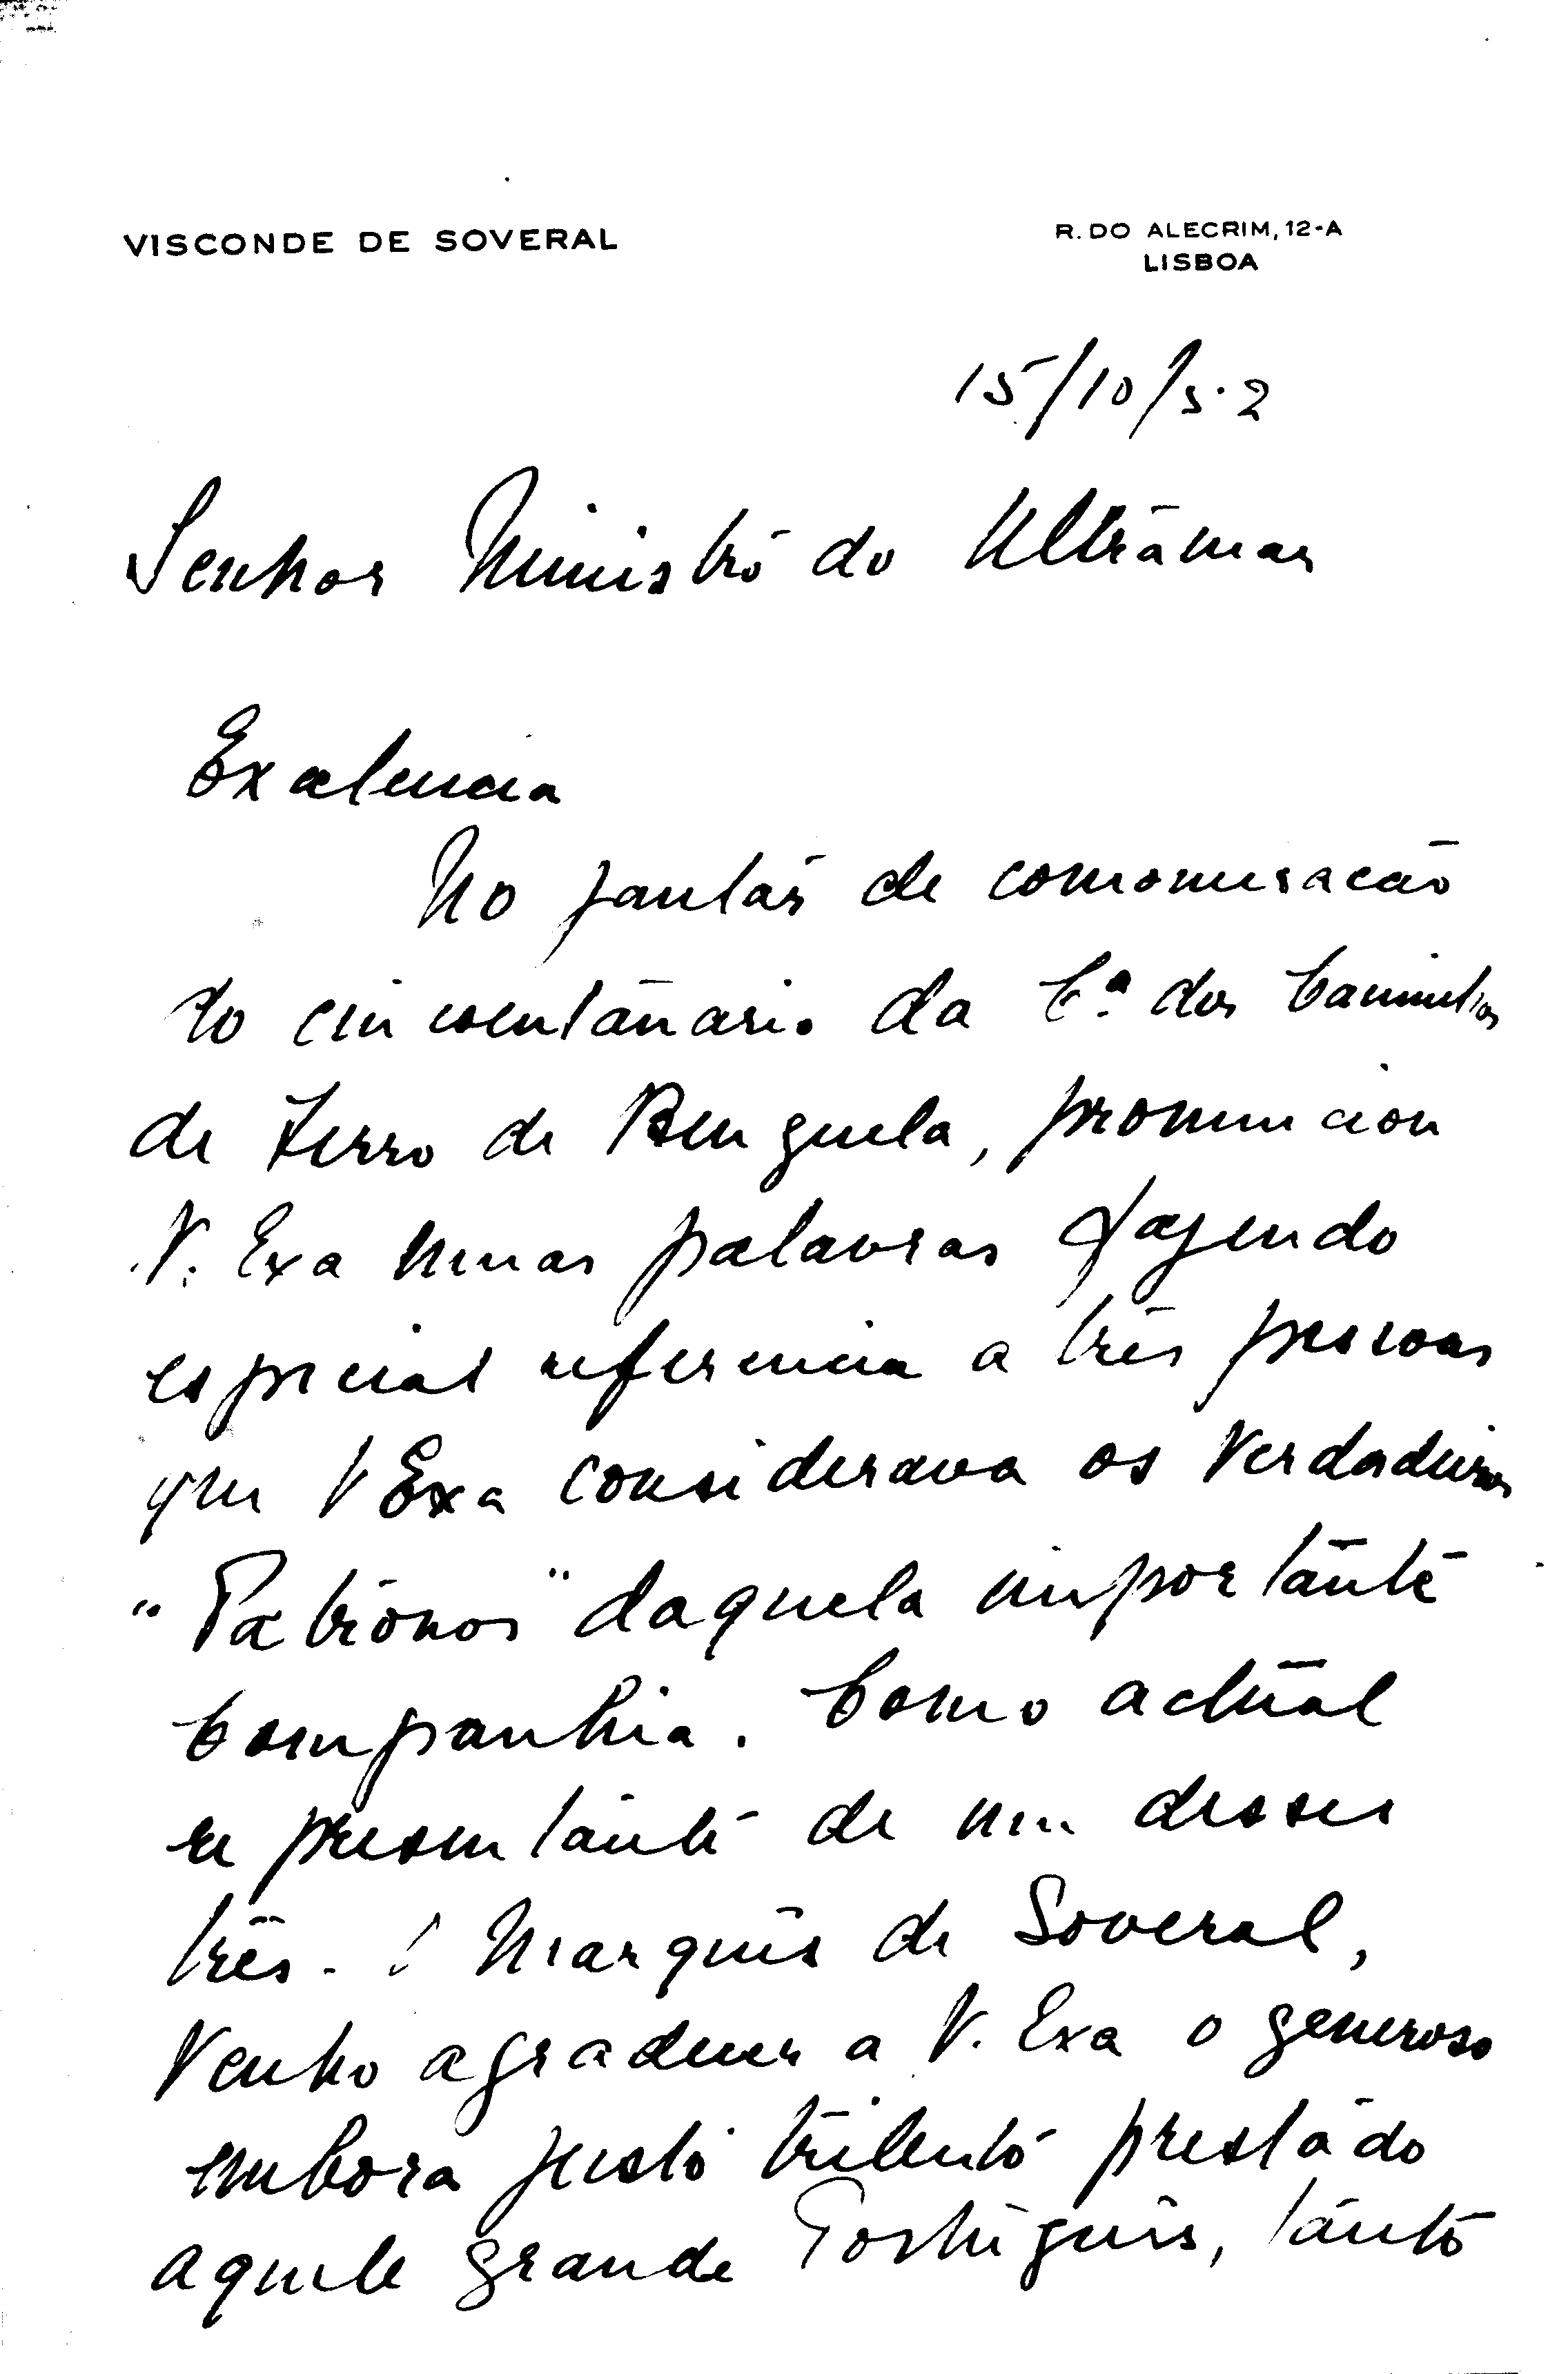 VISCONDE DE SOVERAL
R. DO ALECRIM, 12-A
LISBOA
15/10/52
Senhor Ministro do Ultramar
Excelencia
No jantar de comemoração
do cincoentanario da Cª dos Caminhos
de Ferro de Benguela, pronunciou
V. Exa umas palavras fazendo
especial referencia a três pessoas
que V Exa considerava os verdadeiros
"Patronos" daquela importante
Companhia. Como actual
representante de um desses
três - o Marquês de Soveral,
Venho agradecer a V. Exa o generoso
embora justo tributo prestado
aquele grande Português, tanto